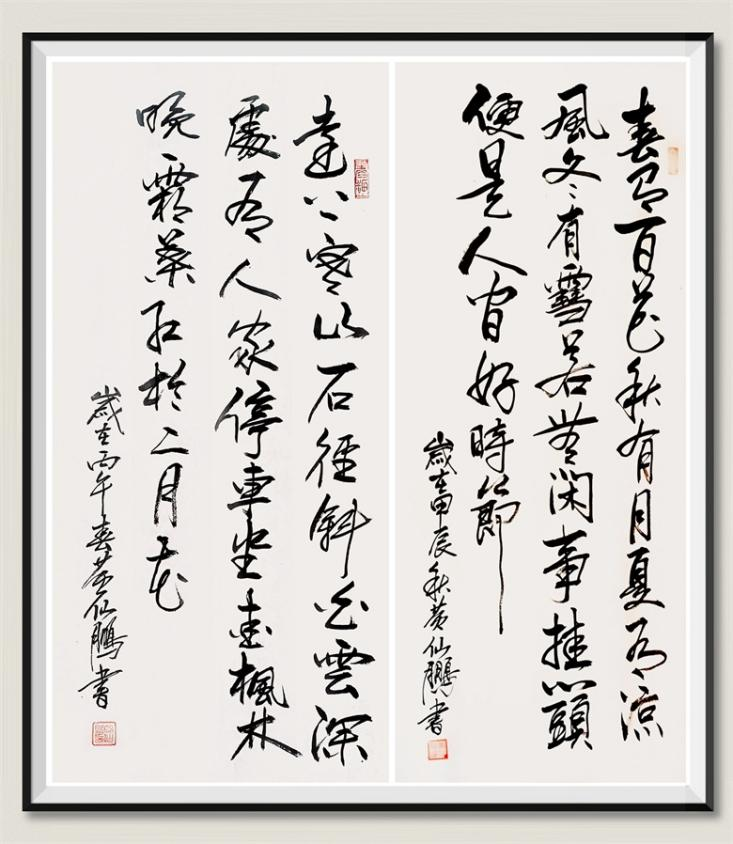 春有百花秋有月夏有涼
風冬有雪若無閑事挂心頭
便是人間好時節
歲在甲辰秋黃仙鵬書
遠上寒山石徑斜白雲深
處有人家停車坐愛楓林
晚霜葉紅於二月花
歲在丙午春黃仙鵬書